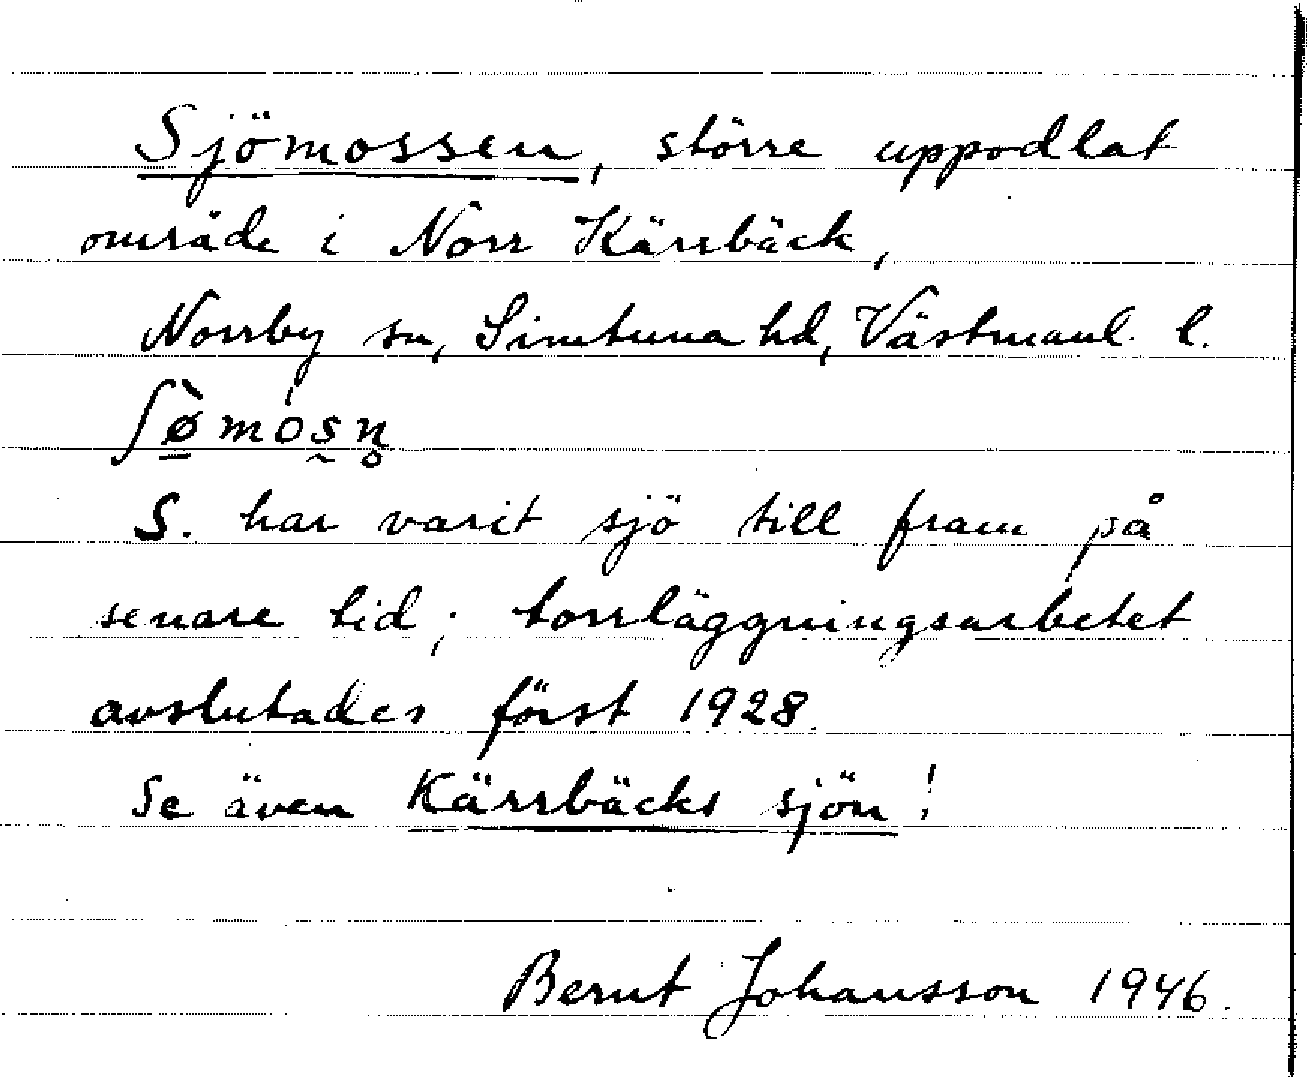 Sjömossen, större uppodlat
område i Norr Kärrbäck,
Norrby sn, Simtuna hd, Västmanl. l.
ʃø̠̀mós̰n̥
S. har varit sjö till fram på
senare tid; torrläggningsarbetet
avslutades först 1928.
Se även Kärrbäcks sjön!
Bernt Johansson 1946.